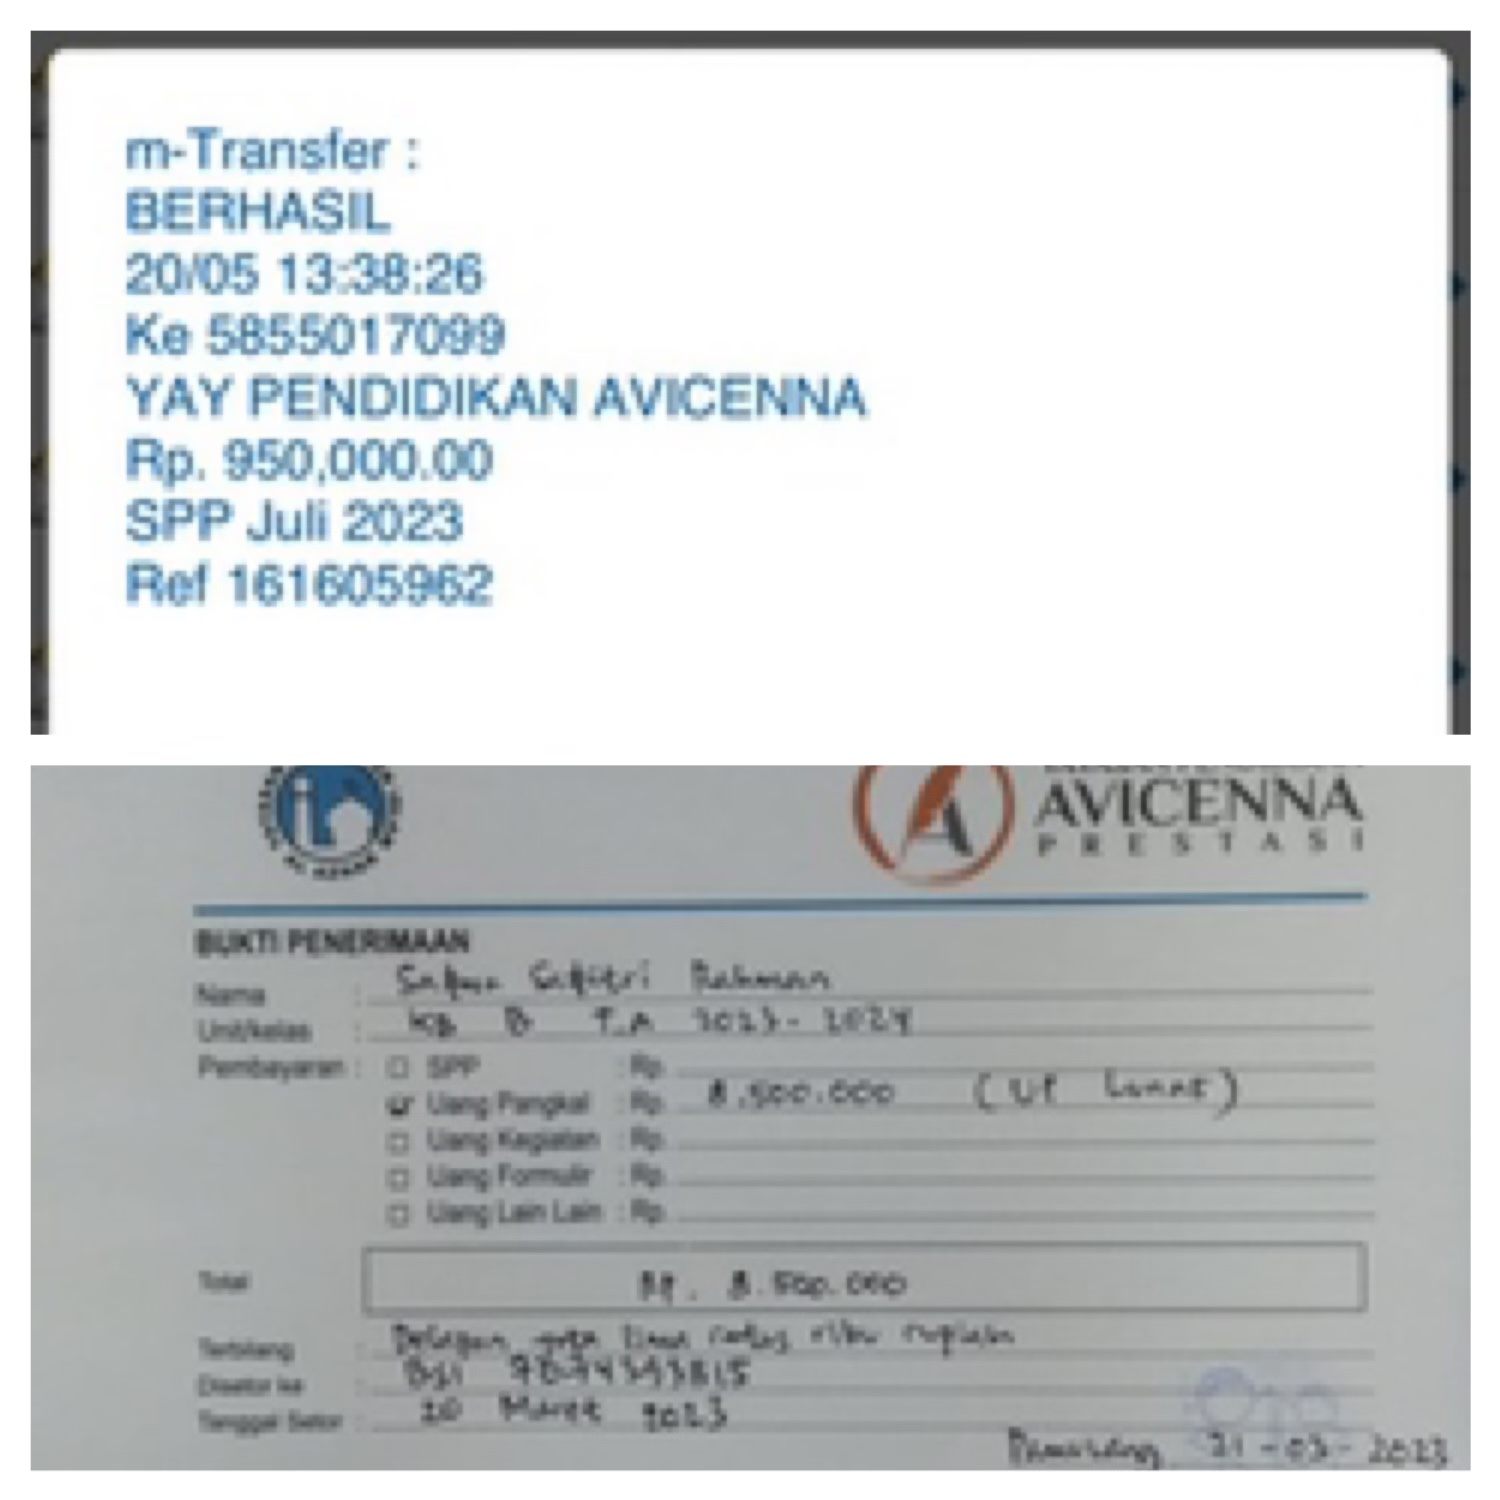 m-Transfer :
BERHASIL
20/05 13:38:26
Ke 5855017099
YAY PENDIDIKAN AVICENNA
Rp. 950,000.00
SPP Juli 2023
Ref 161605962
AVICENNA
PRESTASI
BUKTI PENERIMAAN
Nama : Rahman
Unit/kelas : KB B T.A 2023-2024
Pembayaran : SPP : Rp.
Uang Pangkal : Rp. 8.500.000 (UP Lunas)
Uang Kegiatan : Rp.
Uang Formulir : Rp.
Uang Lain Lain : Rp.
Total Rp. 8.500.000
Terbilang : Delapan juta lima ratus ribu rupiah
Disetor ke : BSI
Tanggal Setor : 20 Maret 2023
Pamulang 21-03-2023